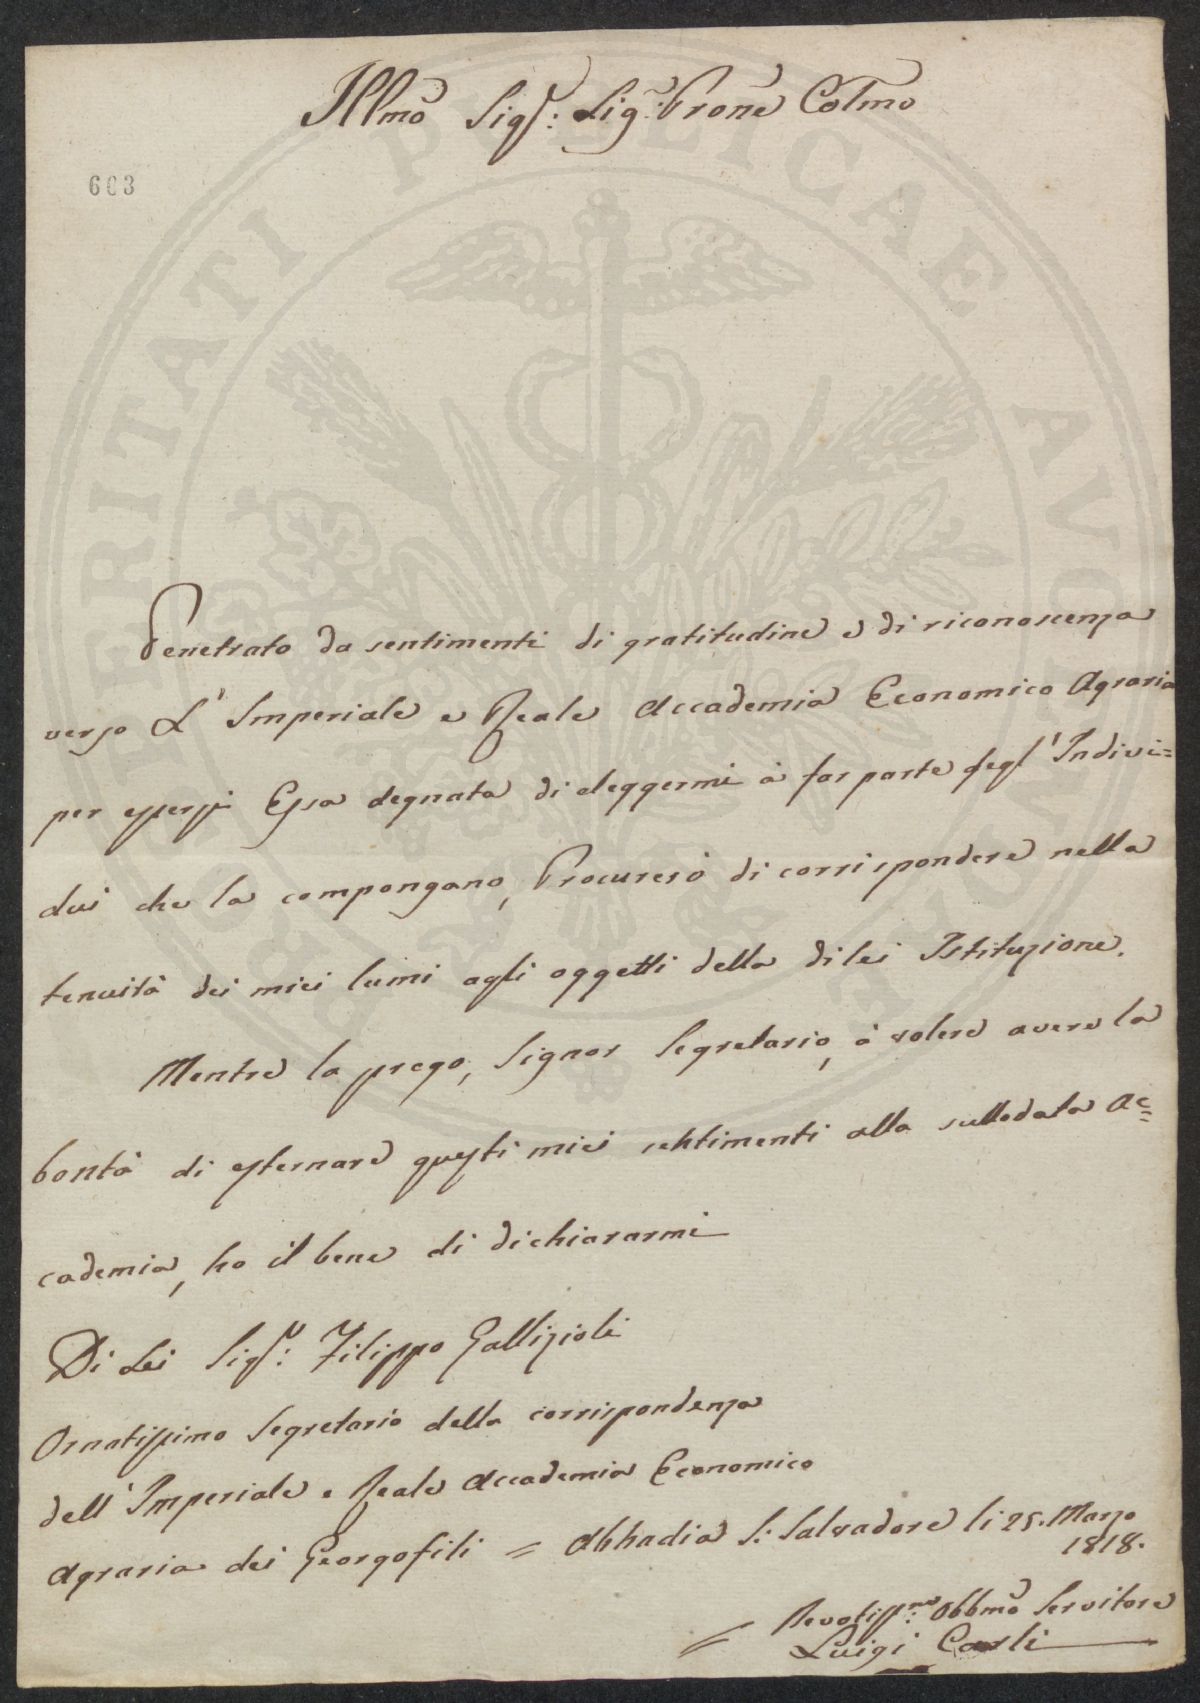 Illmo Sigr: Sigr: Prone Colmo
603
PROSPERITATI PUBLICAE AUGENDAE
Penetrato da sentimenti di gratitudine e di riconoscenza
verso L' Imperiale e Reale Accademia Economico Agraria
per essersi Essa degnata di eleggermi à far parte degl' Indivi=
dui che la compongano, Procurerò di corrispondere nella
tenuità dei miei lumi agli oggetti della di lei Istituzione.
Mentre la prego, Signor Segretario, à volere avere la
bontà di esternare questi miei sentimenti alla sullodata Ac=
cademia, ho il bene di dichiararmi
Di Lei Sigr: Filippo Gallizioli
Ornatissimo Segretario della corrispondenza
dell' Imperiale e Reale Accademia Economico
Agraria dei Georgofili = Abbadia S: Salvadore li 25. Marzo
1818.
= Devotissmo: Obbmo Servitore
Luigi Carli